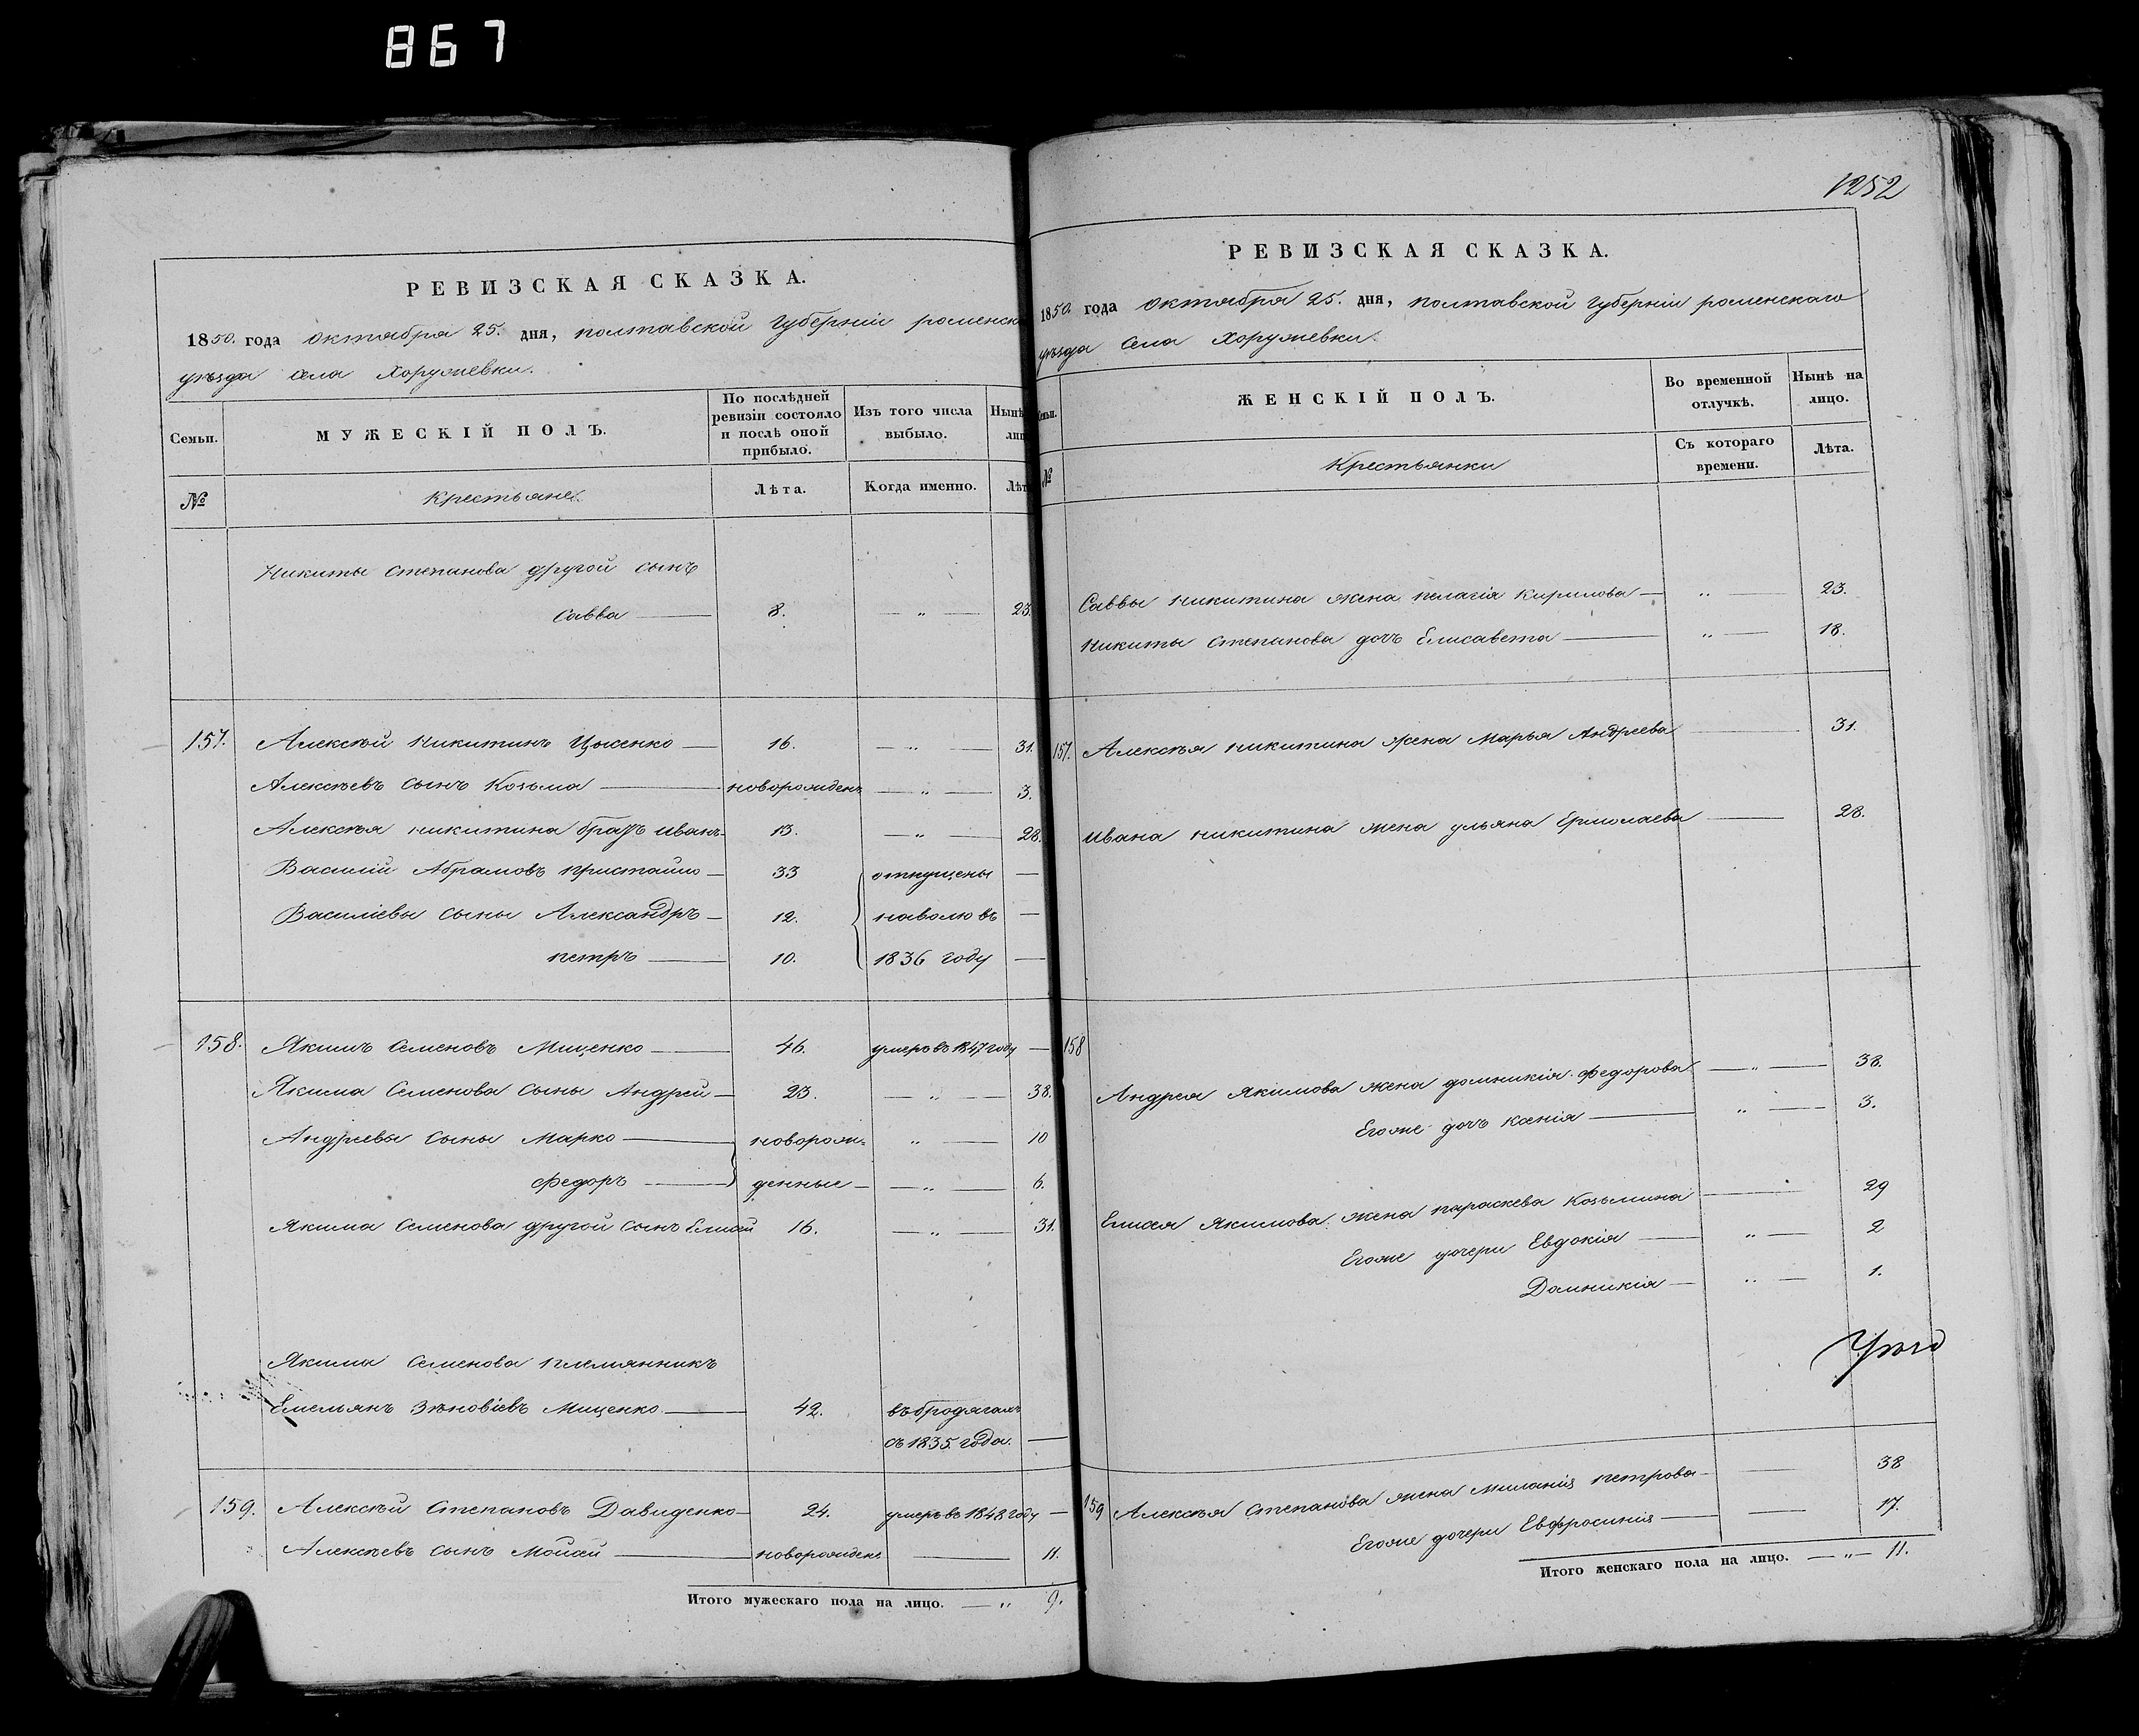 867
РЕВИЗСКАЯ СКАЗКА.
1850. года октября 25. дня, полтавской губерніи роменск
уѣзда села Хоружевки.
Семьи. МУЖЕСКІЙ ПОЛЪ. По послѣдней ревизіи состояло и послѣ оной прибыло. Изъ того числа выбыло. Нынѣ лиц
№ Крестьяне. Лѣта. Когда именно. Лѣт
Никиты Степанова другой сынъ
Савва — 8. — „ — 23.
157. Алексѣй Никитинъ Цысенко — 16. — „ — 31.
Алексѣевъ сынъ Козьма — новорожден. — „ — 3.
Алексѣя Никитина братъ Иванъ 13. — „ — 28.
Василій Абрамовъ Пристайло — 33 отпущены —
Василіевы сыны Александръ — 12. наволю въ —
петръ — 10. 1836 году —
158. Якимъ Семеновъ Мищенко — 46. умеръ въ 1847 году —
Якима Семенова сыны Андрей — 23. — „ — 38.
Андреевы сыны Марко — новорож= „ — 10
Федоръ — денные — — „ — 6.
Якима Семенова другой сынъ Елисей 16. — „ — 31.
Якима Семенова племянникъ
Емельянъ Зѣновіевъ Мищенко — 42. въ бродягахъ
съ 1835. года. —
159. Алексѣй Степановъ Давиденко — 24. умеръ въ 1848 году —
Алексѣевъ сынъ Мойсей — новорожден. — 11.
Итого мужескаго пола на лицо. — „ 9.
1252
РЕВИЗСКАЯ СКАЗКА.
1850. года октября 25. дня, полтавской губерніи роменскаго
уѣзда села Хоружевки.
емьи. ЖЕНСКІЙ ПОЛЪ. Во временной отлучкѣ. Нынѣ на лицо.
№ Крестьянки Съ котораго времени. Лѣта.
Саввы Никитина жена пелагія Кирилова — „ — 23.
Никиты Степанова дочь Елисавета — „ — 18.
157. Алексѣя Никитина жена Марья Андреева — 31.
Ивана Никитина жена ульяна Ермолаева — 28.
158
Андрея Якимова жена домникія Федорова — „ — 38.
Егоже дочь Ксенія — „ — 3.
Елисея Якимова жена параскева Козьмина — 29
Егоже дочери Евдокія — „ — 2
Домникія — „ — 1.
159 Алексѣя Степанова жена Миланія петрова — 38
Егоже дочери Евфросинія — 17.
Итого женскаго пола на лицо. — „ — 11.